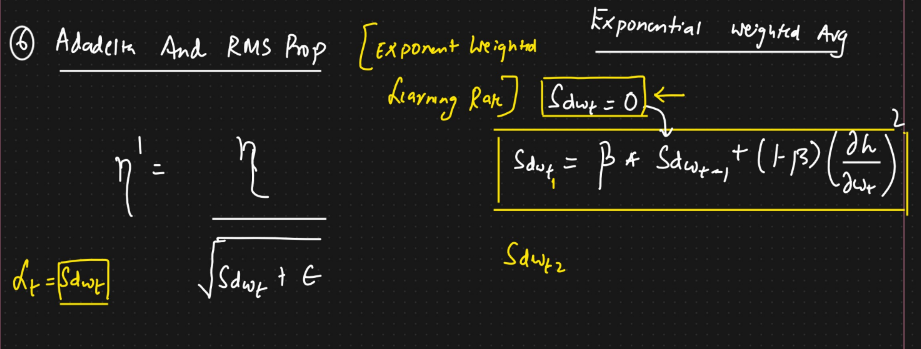 ⑥ Adadelta And RMS Prop [Exponent Weighted
Learning Rate]
Exponential weighted Avg
Sdwt = 0 ←
Sdwt₁ = β * Sdwt-1 + (1-β) (∂h/∂wt)²
η' = η / √(Sdwt + ε)
αt = Sdwt
Sdwt2